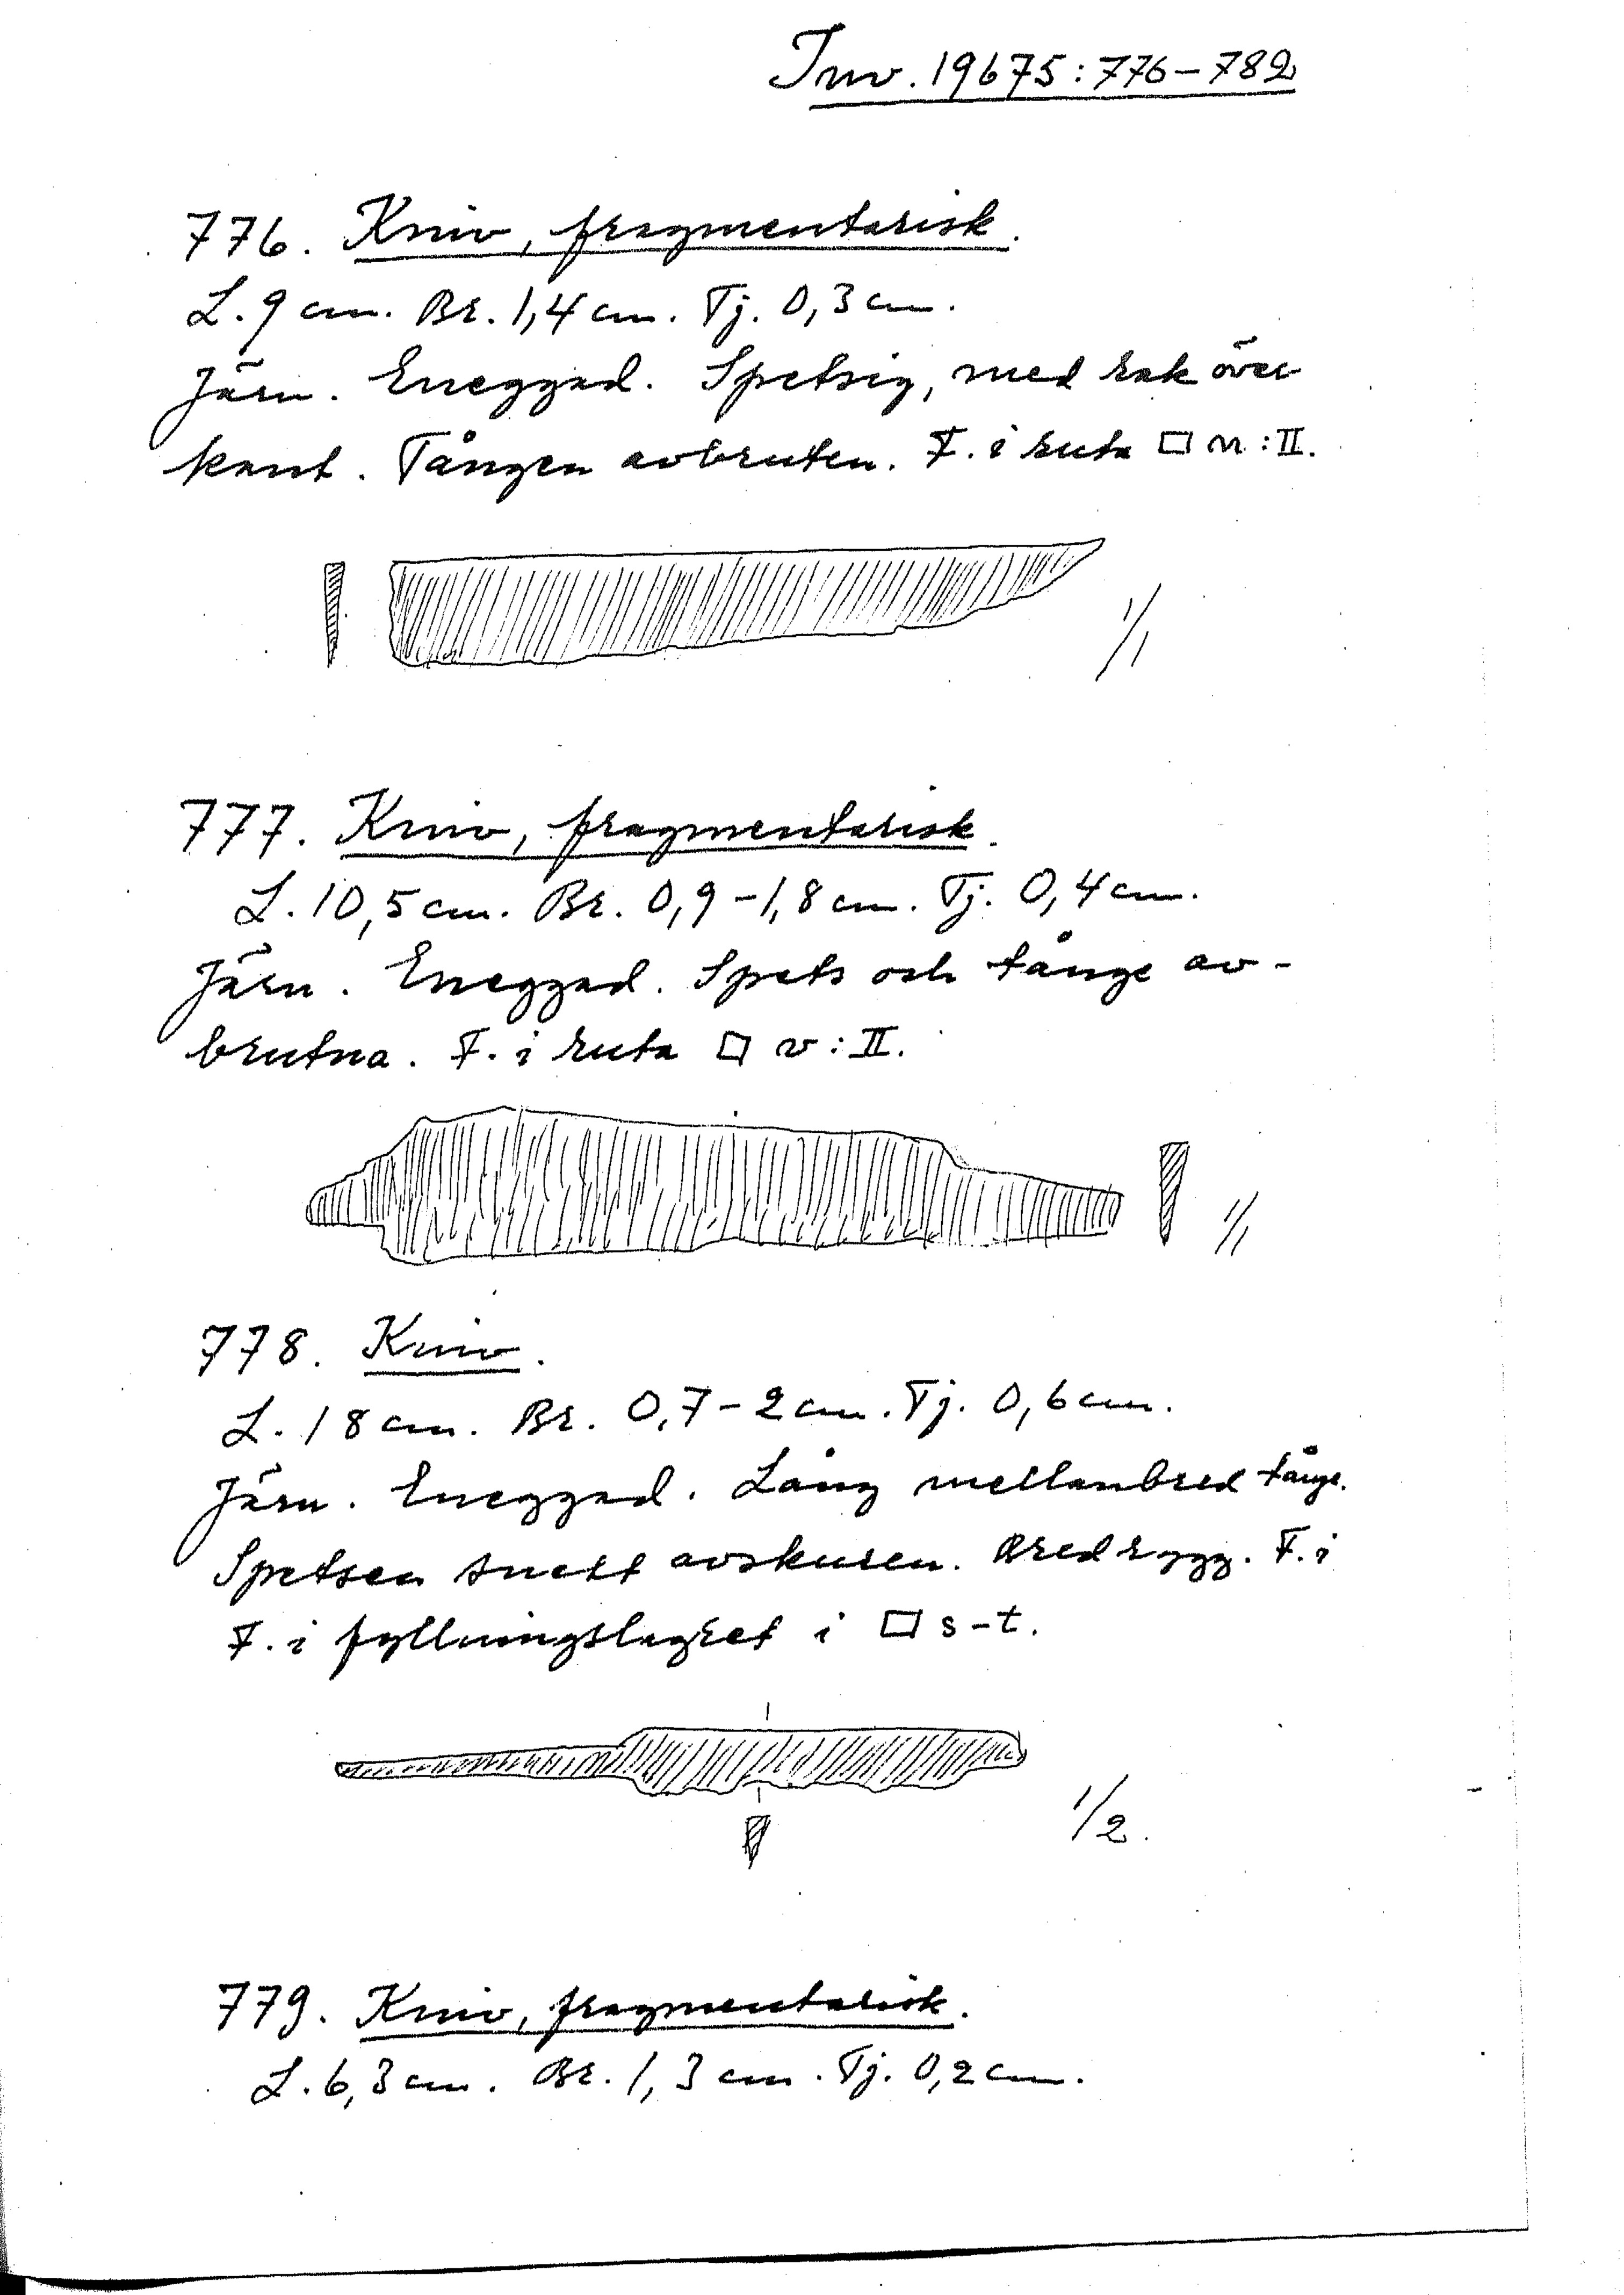 Inv. 19675:776-782
776. Kniv, fragmentarisk.
L. 9 cm. Br. 1,4 cm. Tj. 0,3 cm.
Järn. Eneggad. Spetsig, med rak över
kant. Tången avbruten. F. i ruta □ n:II.
1/1
777. Kniv, fragmentarisk.
L. 10,5 cm. Br. 0,9-1,8 cm. Tj. 0,4 cm.
Järn. Eneggad. Spets och tånge av-
brutna. F. i ruta □ v:II.
1/1
778. Kniv.
L. 18 cm. Br. 0,7-2 cm. Tj. 0,6 cm.
Järn. Eneggad. Lång mellanbred tånge.
Spetsen snett avskuren. Bred rygg. F. i
F. i fyllningslagret i □ s-t.
1/2.
779. Kniv, fragmentarisk.
L. 6,3 cm. Br. 1,3 cm. Tj. 0,2 cm.